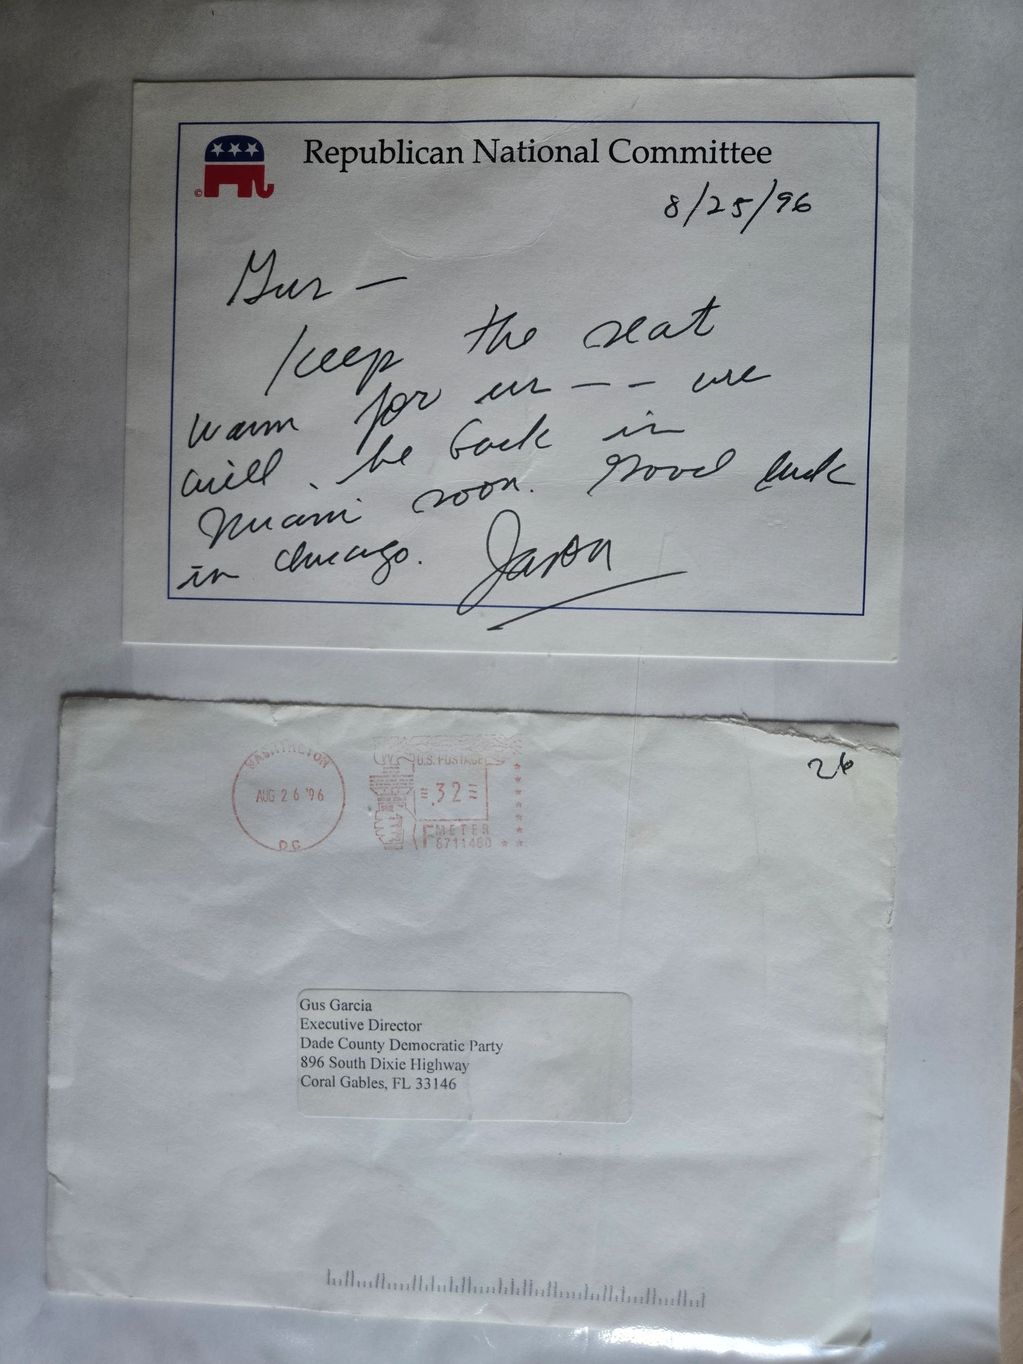 Republican National Committee
©
8/25/96
Gus —
Keep the seat
warm for us — — we
will be back in
Miami soon. Good luck
in Chicago. Jason
WASHINGTON
AUG 26 '96
D.C.
U.S. POSTAGE
.32
METER
6711480
26
Gus Garcia
Executive Director
Dade County Democratic Party
896 South Dixie Highway
Coral Gables, FL 33146